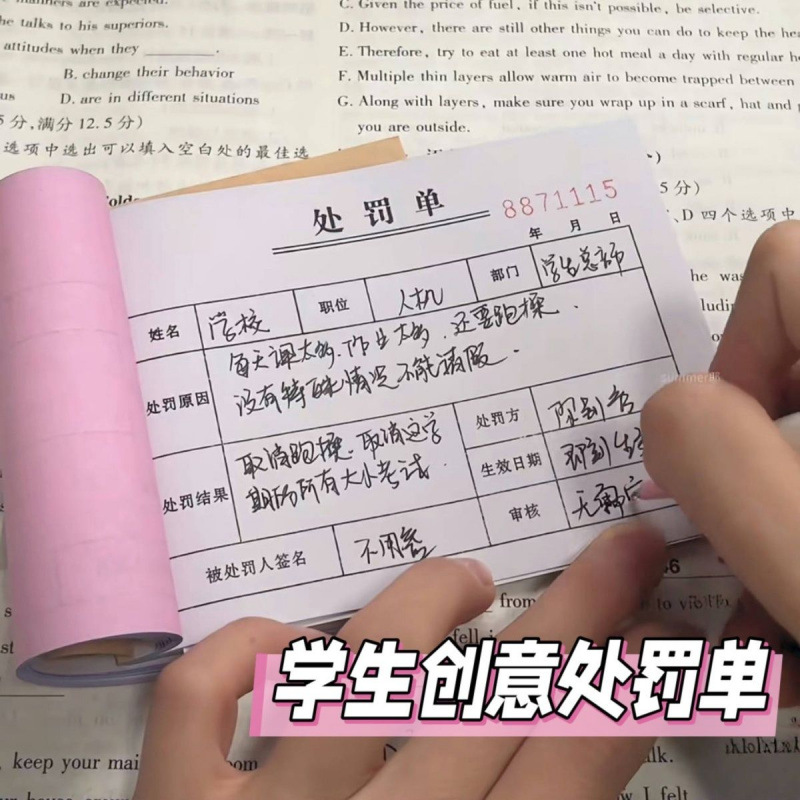 manners are expected.
he talks to his superiors.
attitudes when they ________.
B. change their behavior
D. are in different situations
5分,满分12.5分)
选项中选出可以填入空白处的最佳选
C. Given the price of fuel, if this isn't possible, be selective.
D. However, there are still other things you can do to keep the hea
E. Therefore, try to eat at least one hot meal a day with regular h
F. Multiple thin layers allow warm air to become trapped between
G. Along with layers, make sure you wrap up in a scarf, hat and
you are outside.
5分)
、D 四个选项中
he was
处罚单
8871115
年 月 日
姓名 学校 职位 人机 部门
处罚原因
每天课太多、作业太多、还要跑操.
没有特殊情况不能请假.
处罚结果
取消跑操、取消这学
期的所有大小考试
处罚方
生效日期 即刻生
审核
被处罚人签名 不用签
summer郡
from
fell i
keep your mai
room.
I felt
学生创意处罚单